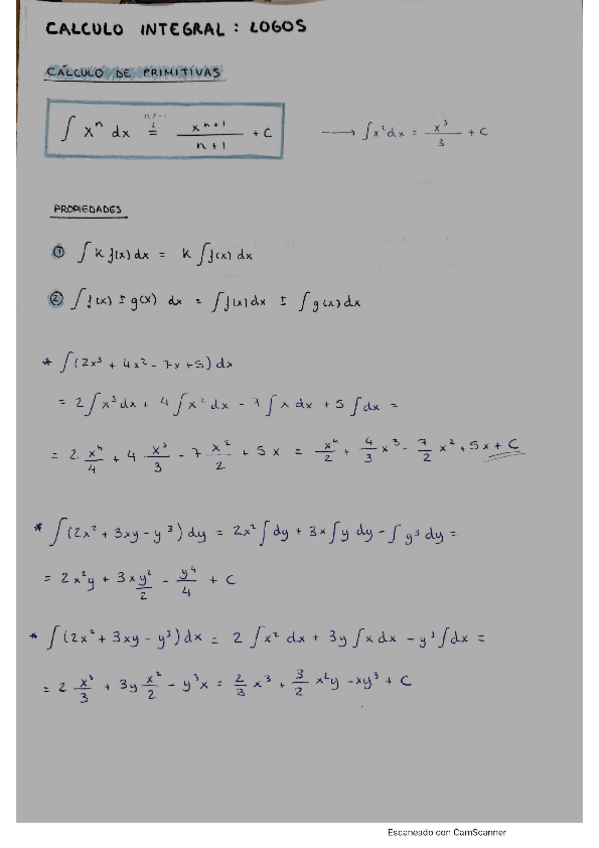 CALCULO INTEGRAL: LOGOS
CÁLCULO DE PRIMITIVAS
∫ xⁿ dx = xⁿ⁺¹/n+1 + C → ∫x²dx = x³/3 + C
PROPIEDADES
① ∫ k f(x) dx = k ∫f(x) dx
② ∫ f(x) ± g(x) dx = ∫f(x) dx ± ∫g(x) dx
* ∫(2x³ + 4x² - 7x + 5) dx
= 2∫x³dx + 4∫x²dx - 7∫x dx + 5∫dx =
= 2 x⁴/4 + 4 x³/3 - 7 x²/2 + 5x = x⁴/2 + 4/3 x³ - 7/2 x² + 5x + C
* ∫(2x² + 3xy - y³) dy = 2x²∫dy + 3x∫y dy - ∫y³ dy =
= 2x²y + 3x y²/2 - y⁴/4 + C
* ∫(2x² + 3xy - y³) dx = 2∫x² dx + 3y∫x dx - y³∫dx =
= 2 x³/3 + 3y x²/2 - y³x = 2/3 x³ + 3/2 x²y - xy³ + C
Escaneado con CamScanner